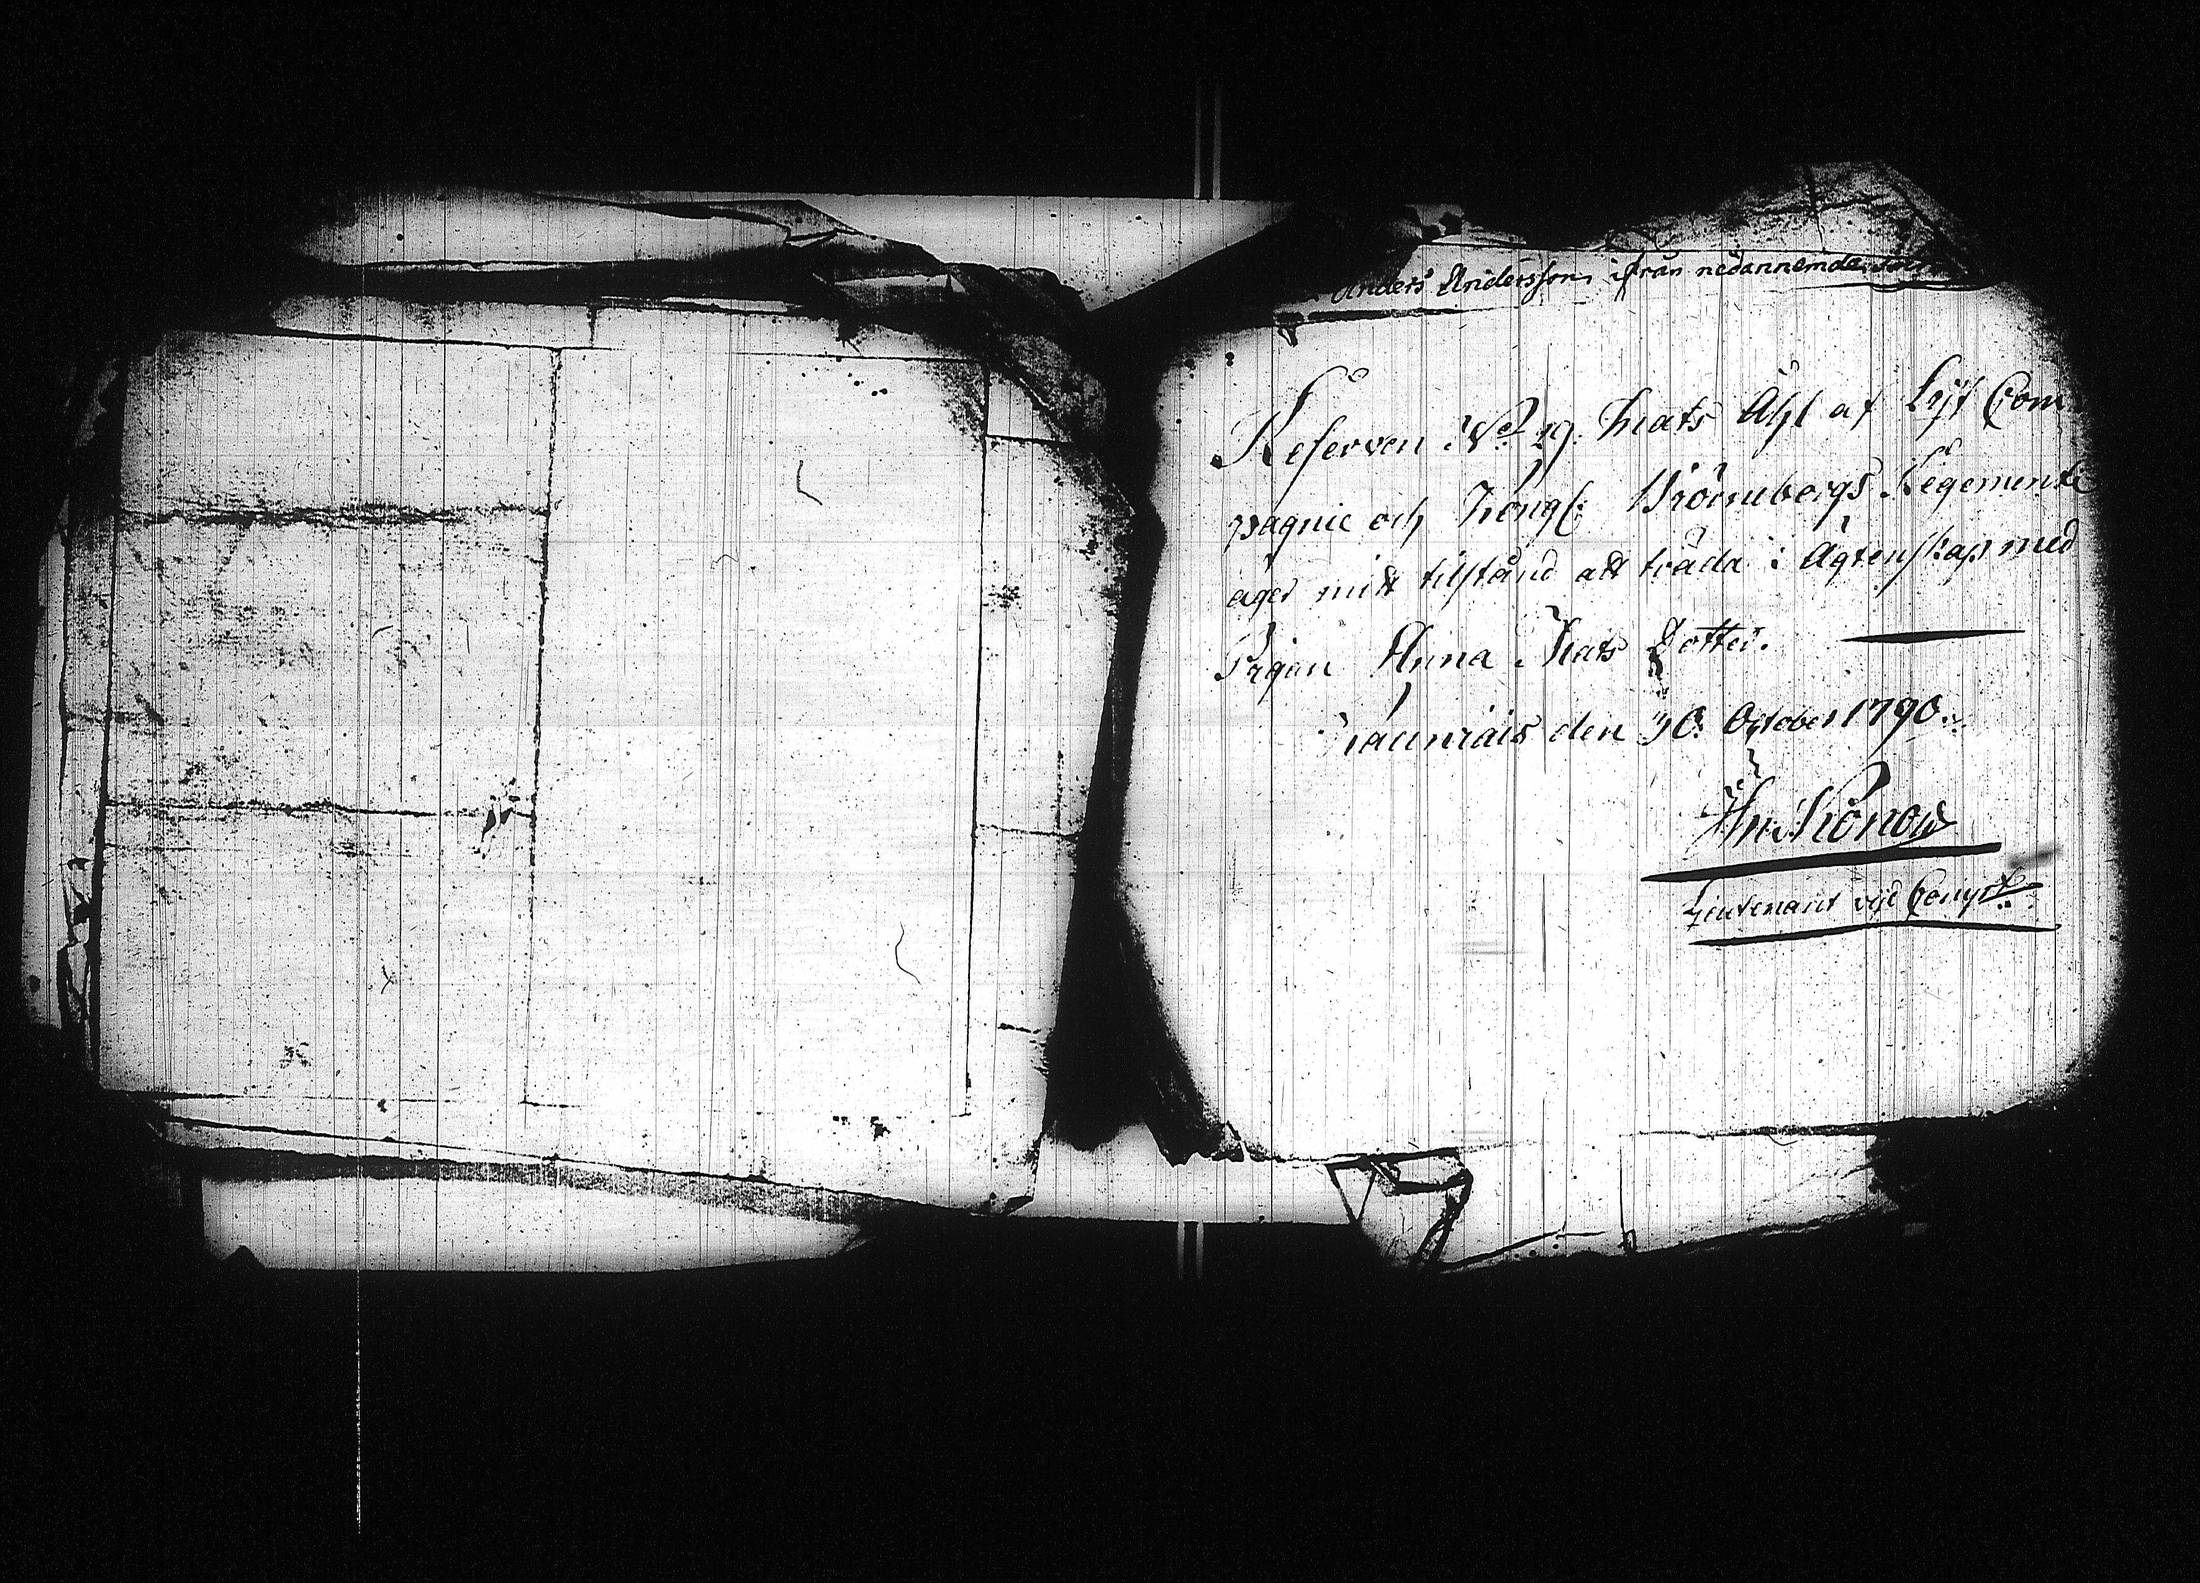 Anders Andersson ifrån nedannemda
Reserven No 19. Mats Åhl af Lijf Com
pagnie och Kongl: Kronobergs Regemente
äger mitt tilstånd att träda i Ägtenskap med
Pigan Anna Mats Dotter.
den 30. October 1790.
Lieutenant vid Compt: